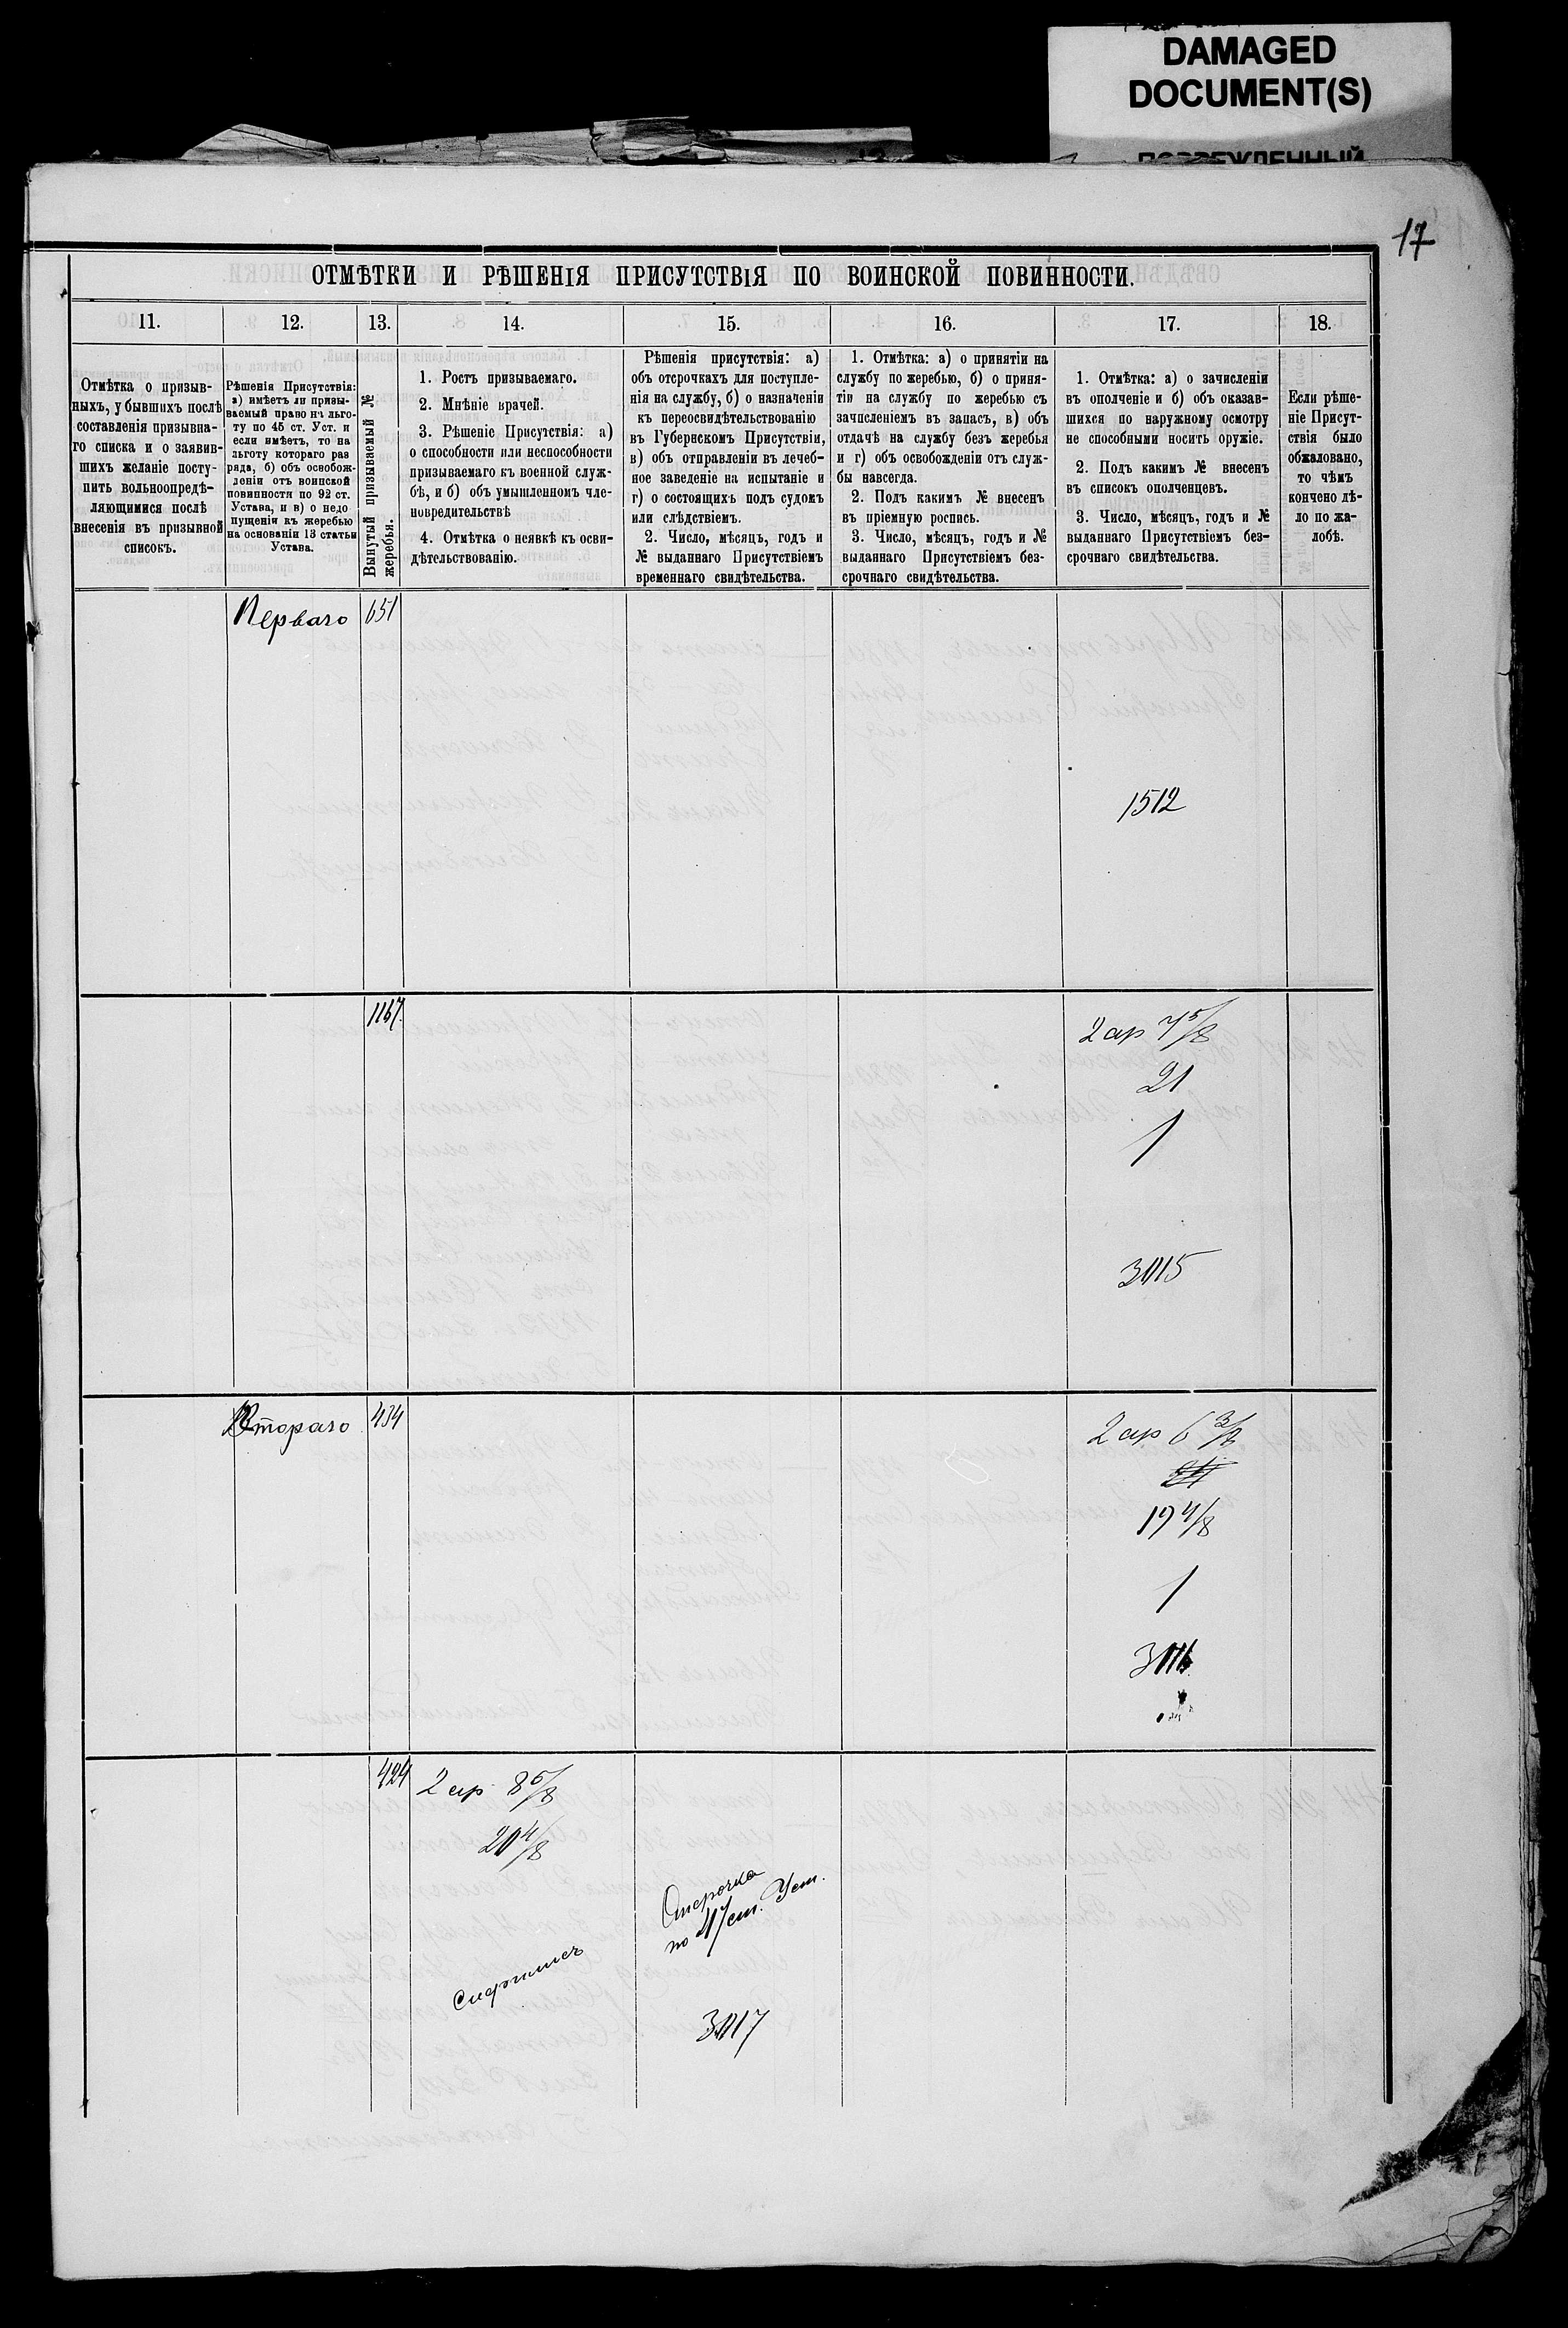 DAMAGED
DOCUMENT(S)
ПОВРЕЖДЕННЫЙ
17
ОТМѢТКИ И РѢШЕНІЯ ПРИСУТСТВІЯ ПО ВОИНСКОЙ ПОВИННОСТИ.
11.
12.
13.
14.
15.
16.
17.
18.
Отмѣтка о призыв-
ныхъ, у бывшихъ послѣ
составленія призывна-
го списка и о заявив-
шихъ желаніе посту-
пить вольноопредѣ-
ляющимися послѣ
внесенія въ призывной
списокъ.
Рѣшенія Присутствія:
а) имѣетъ ли призы-
ваемый право на льго-
ту по 45 ст. Уст. и
если имѣетъ, то на
льготу котораго раз
ряда, б) объ освобож-
деніи отъ воинской
повинности по 92 ст.
Устава, и в) о недо
пущеніи къ жеребью
на основаніи 13 статьи
Устава.
Вынутый призываемый №
жеребья.
1. Ростъ призываемаго.
2. Мнѣніе врачей.
3. Рѣшеніе Присутствія: а)
о способности или неспособности
призываемаго къ военной служ-
бѣ, и б) объ умышленномъ чле-
новредительствѣ
4. Отмѣтка о неявкѣ къ осви-
дѣтельствованію.
Рѣшенія присутствія: а)
объ отсрочкахъ для поступле-
нія на службу, б) о назначеніи
къ переосвидѣтельствованію
въ Губернскомъ Присутствіи,
в) объ отправленіи въ лечеб-
ное заведеніе на испытаніе и
г) о состоящихъ подъ судомъ
или слѣдствіемъ.
2. Число, мѣсяцъ, годъ и
№ выданнаго Присутствіемъ
временнаго свидѣтельства.
1. Отмѣтка: а) о принятіи на
службу по жеребью, б) о приня-
тіи на службу по жеребью съ
зачисленіемъ въ запасъ, в) объ
отдачѣ на службу безъ жеребья
и г) объ освобожденіи отъ служ-
бы навсегда.
2. Подъ какимъ № внесенъ
въ пріемную роспись.
3. Число, мѣсяцъ, годъ и №
выданнаго Присутствіемъ без-
срочнаго свидѣтельства.
1. Отмѣтка: а) о зачисленіи
въ ополченіе и б) объ оказав-
шихся по наружному осмотру
не способными носить оружіе.
2. Подъ какимъ № внесенъ
въ списокъ ополченцевъ.
3. Число, мѣсяцъ, годъ и №
выданнаго Присутствіемъ без-
срочнаго свидѣтельства.
Если рѣше-
ніе Присут-
ствія было
обжаловано,
то чѣмъ
кончено дѣ-
ло по жа-
лобѣ.
Перваго
651
1512
1167
2 ар 7 5/8
21
1
3015
Второго
434
2 ар 6 3/8
19 4/8
1
3016
424
2 ар 8 5/8
20 4/8
Отсрочка
по 47 ст. Уст.
3017